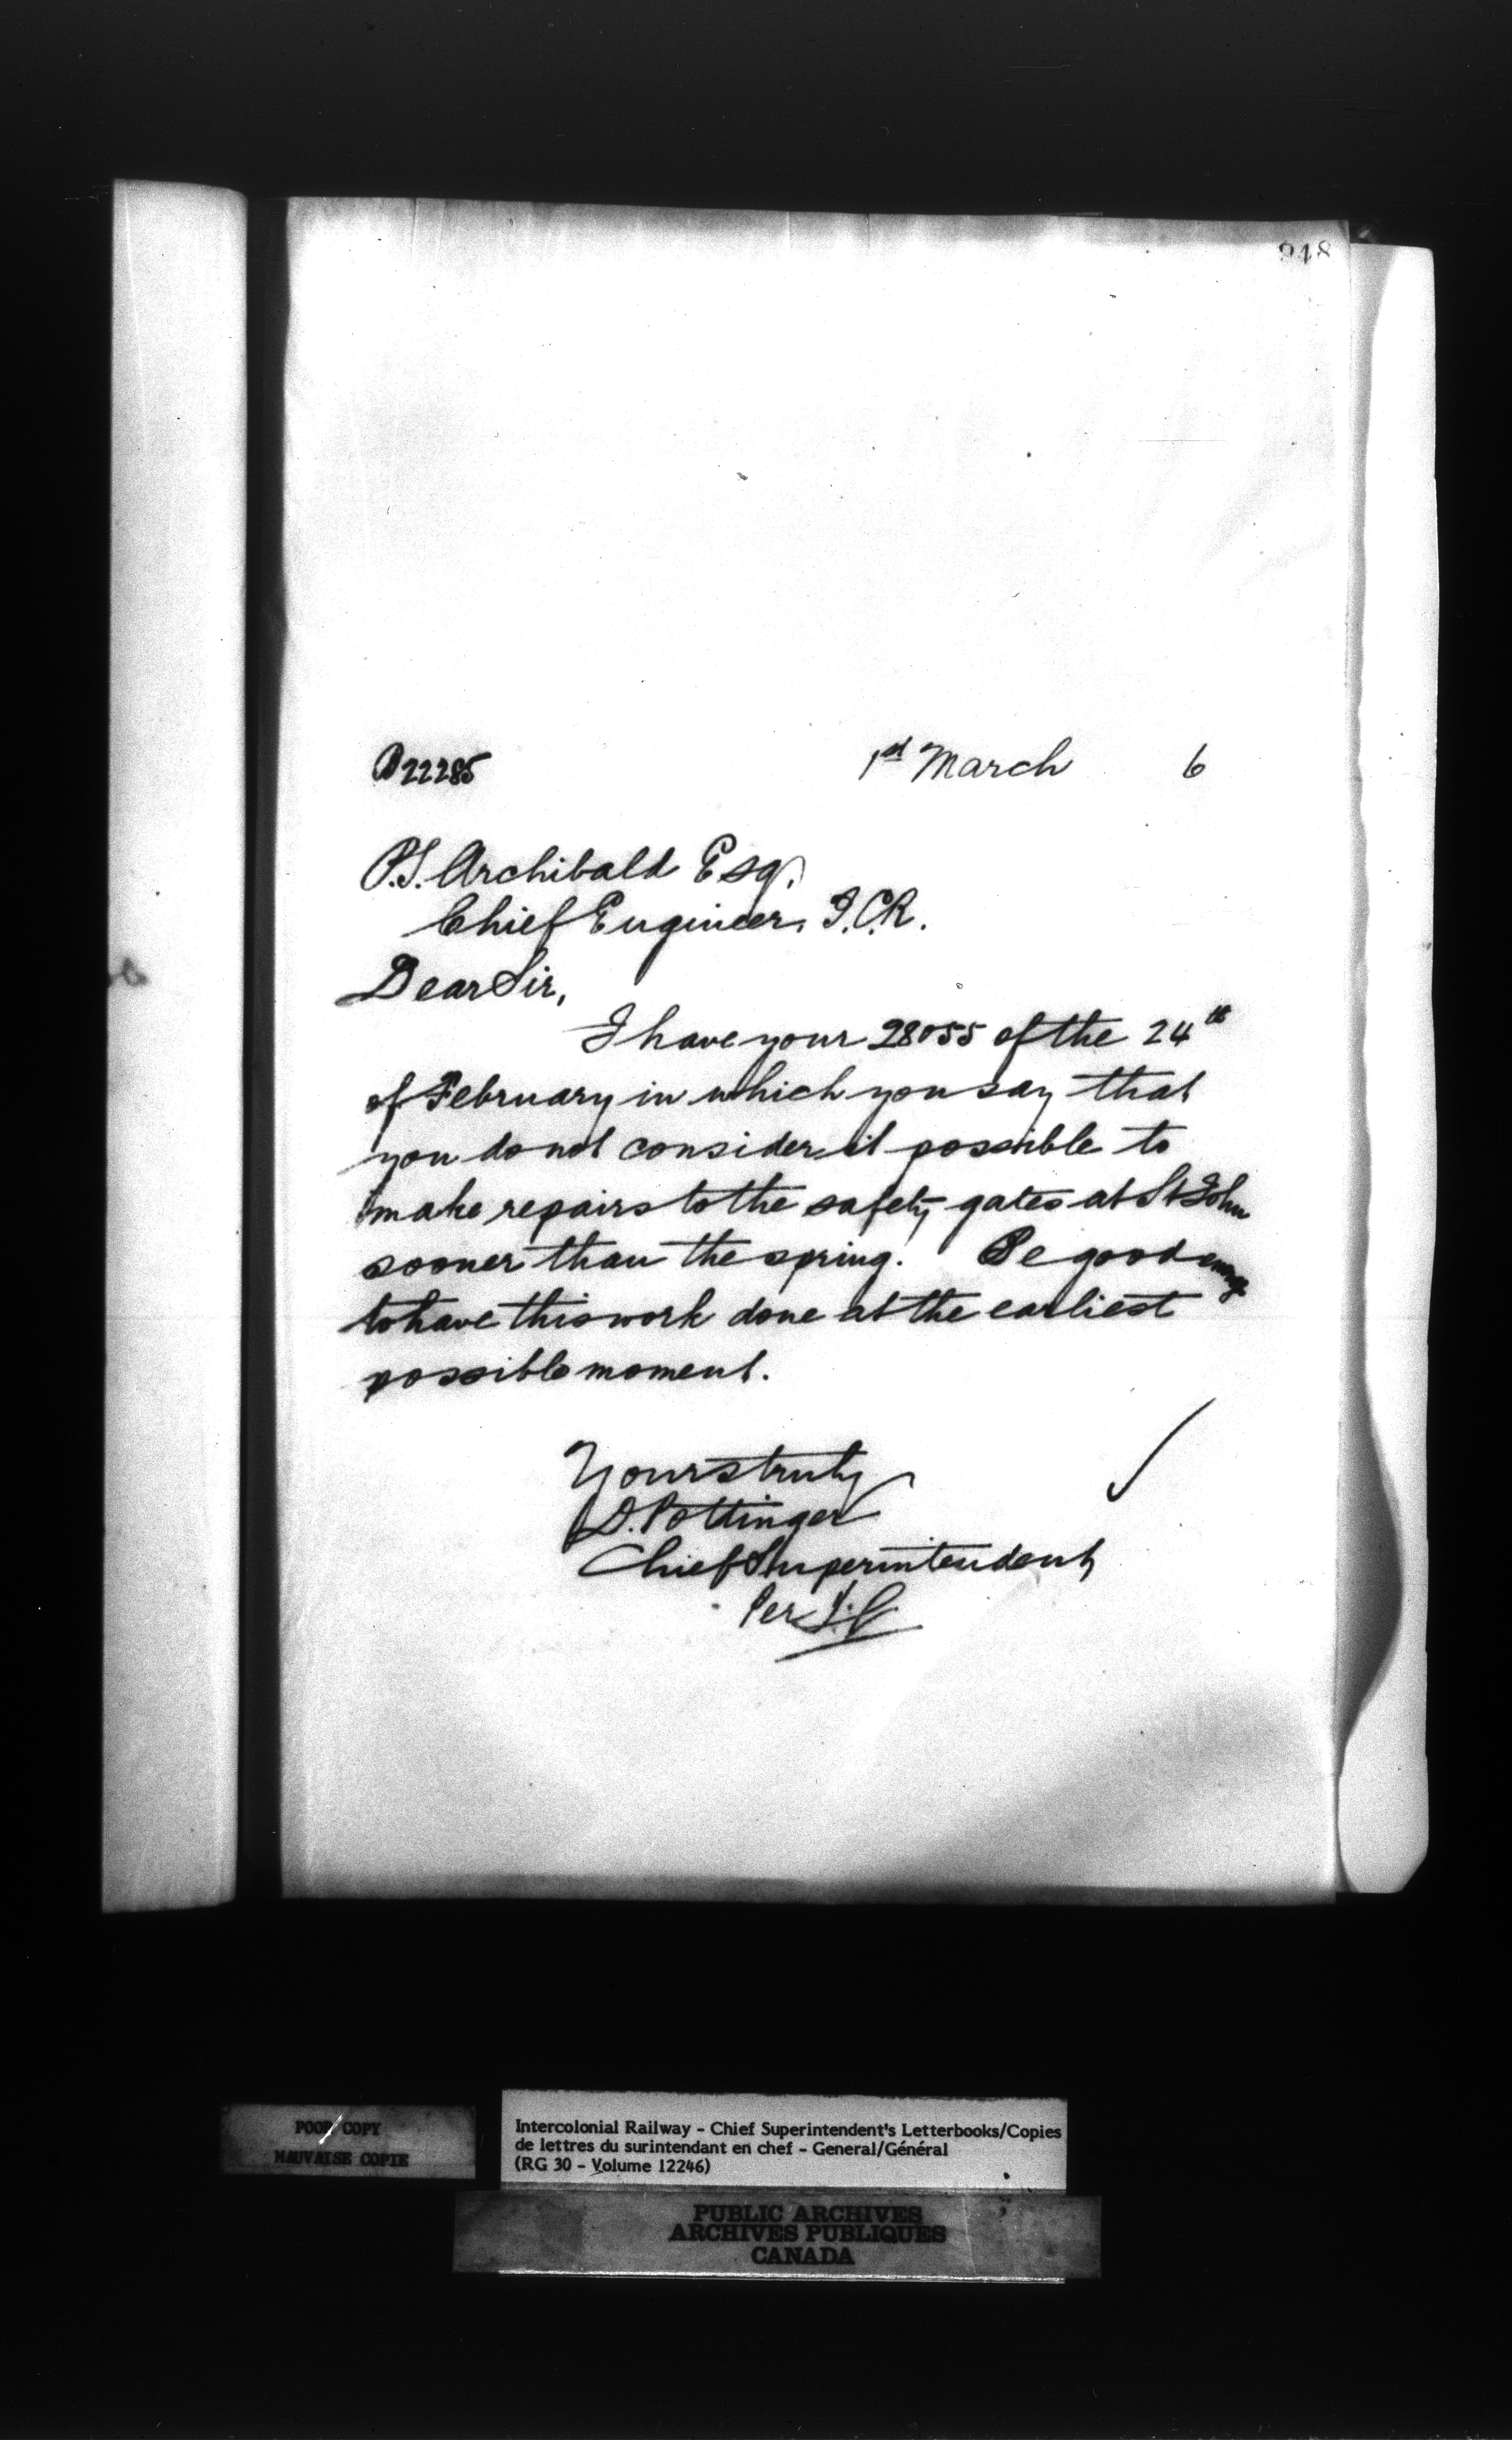 948
P22285
1st March 6
P.S. Archibald Esq.
Chief Engineer, I.C.R.
Dear Sir,
I have your 28055 of the 24th
of February in which you say that
you do not consider it possible to
make repairs to the safety gates at St John
sooner than the spring. Be good enough
to have this work done at the earliest
possible moment.
Yours truly
D. Pottinger
Chief Superintendent
Per
POOR COPY
MAUVAISE COPIE
Intercolonial Railway - Chief Superintendent's Letterbooks/Copies
de lettres du surintendant en chef - General/Général
(RG 30 - Volume 12246)
PUBLIC ARCHIVES
ARCHIVES PUBLIQUES
CANADA